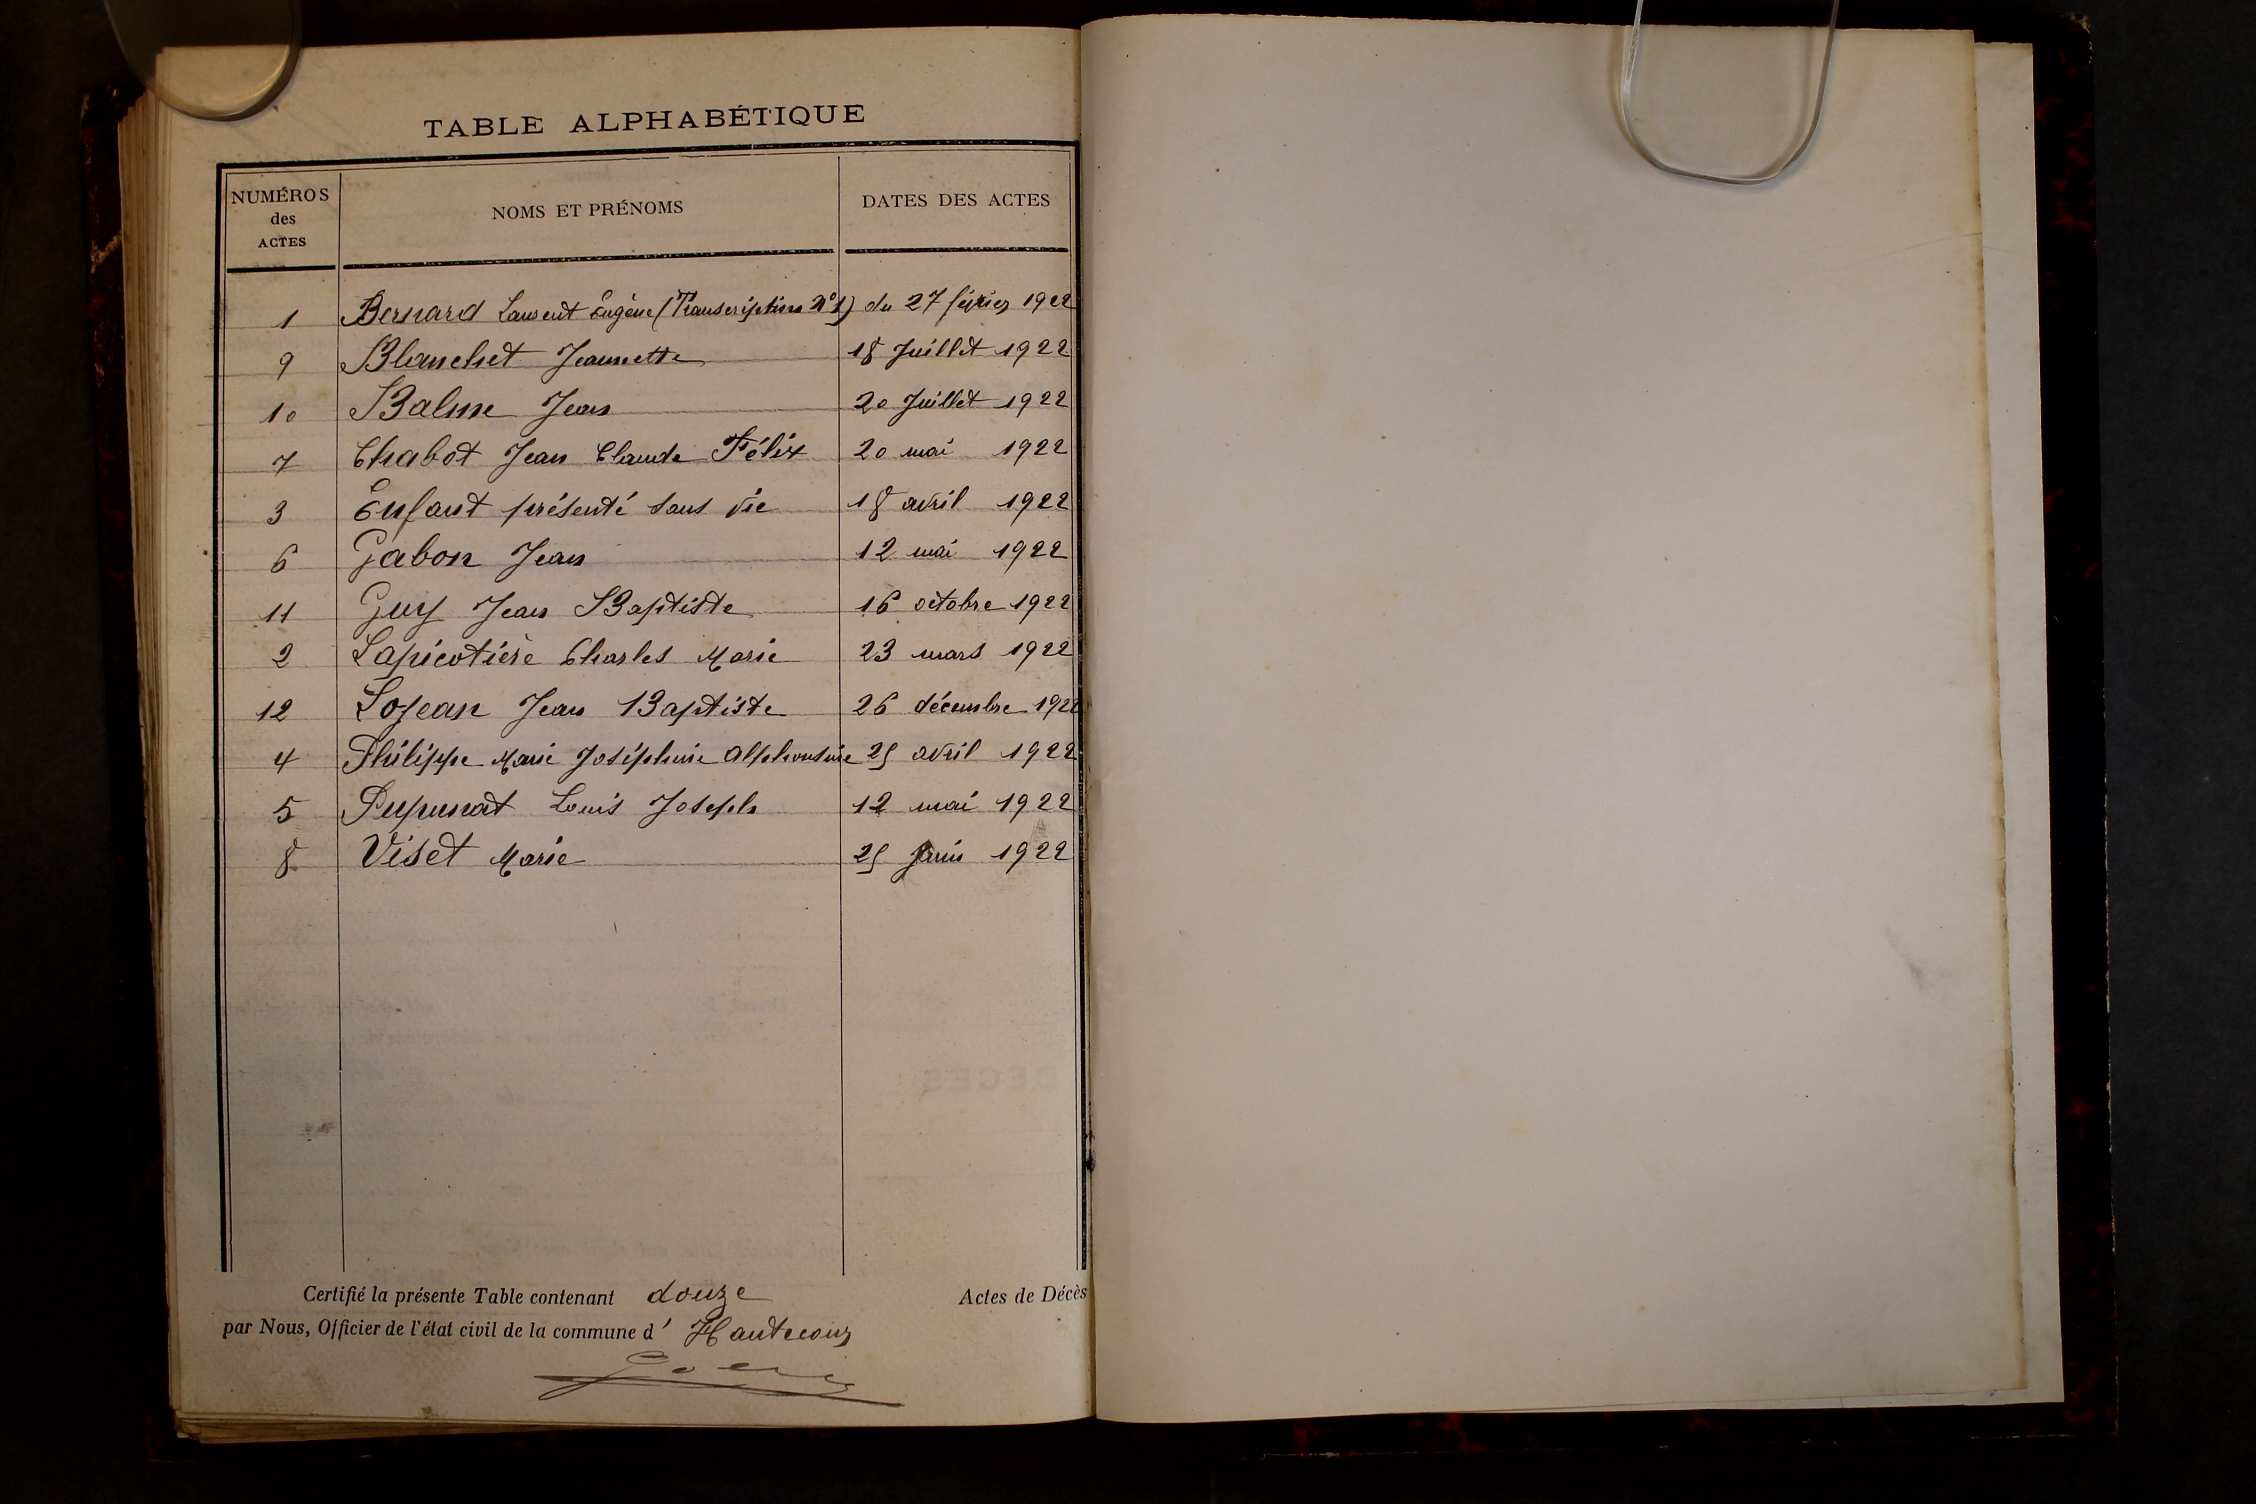 TABLE ALPHABÉTIQUE
NUMÉROS des ACTES NOMS ET PRÉNOMS DATES DES ACTES
1 Bernard Laurent Eugène (Transcription N°1) du 27 février 1922
9 Blanchet Jeannette 18 Juillet 1922
10 Balme Jean 20 Juillet 1922
7 Chabot Jean Claude Félix 20 mai 1922
3 Enfant présenté sans vie 18 avril 1922
6 Gabon Jean 12 mai 1922
11 Guy Jean Baptiste 16 octobre 1922
2 Lapicotière Charles Marie 23 mars 1922
12 Lojean Jean Baptiste 26 décembre 1922
4 Philippe Marie Joséphine Alphonsine 25 avril 1922
5 Pupunat Louis Joseph 12 mai 1922
8 Viset Marie 25 juin 1922
Certifié la présente Table contenant douze Actes de Décès
par Nous, Officier de l'état civil de la commune d' Hautecour